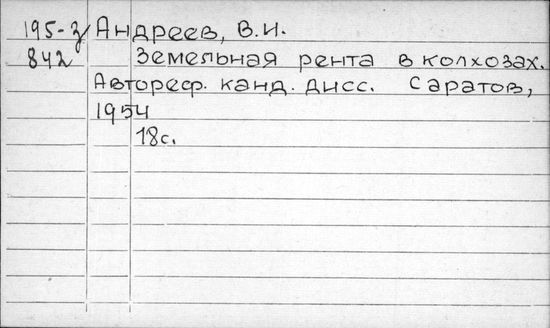 195-з Андреев, В.И.
842 Земельная рента в колхозах.
Автореф. канд. дисс. Саратов,
1954
18с.